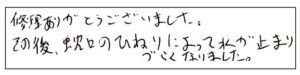 修理ありがとうございました。
その後、蛇口のひねりによって水が止まり
づらくなりました。